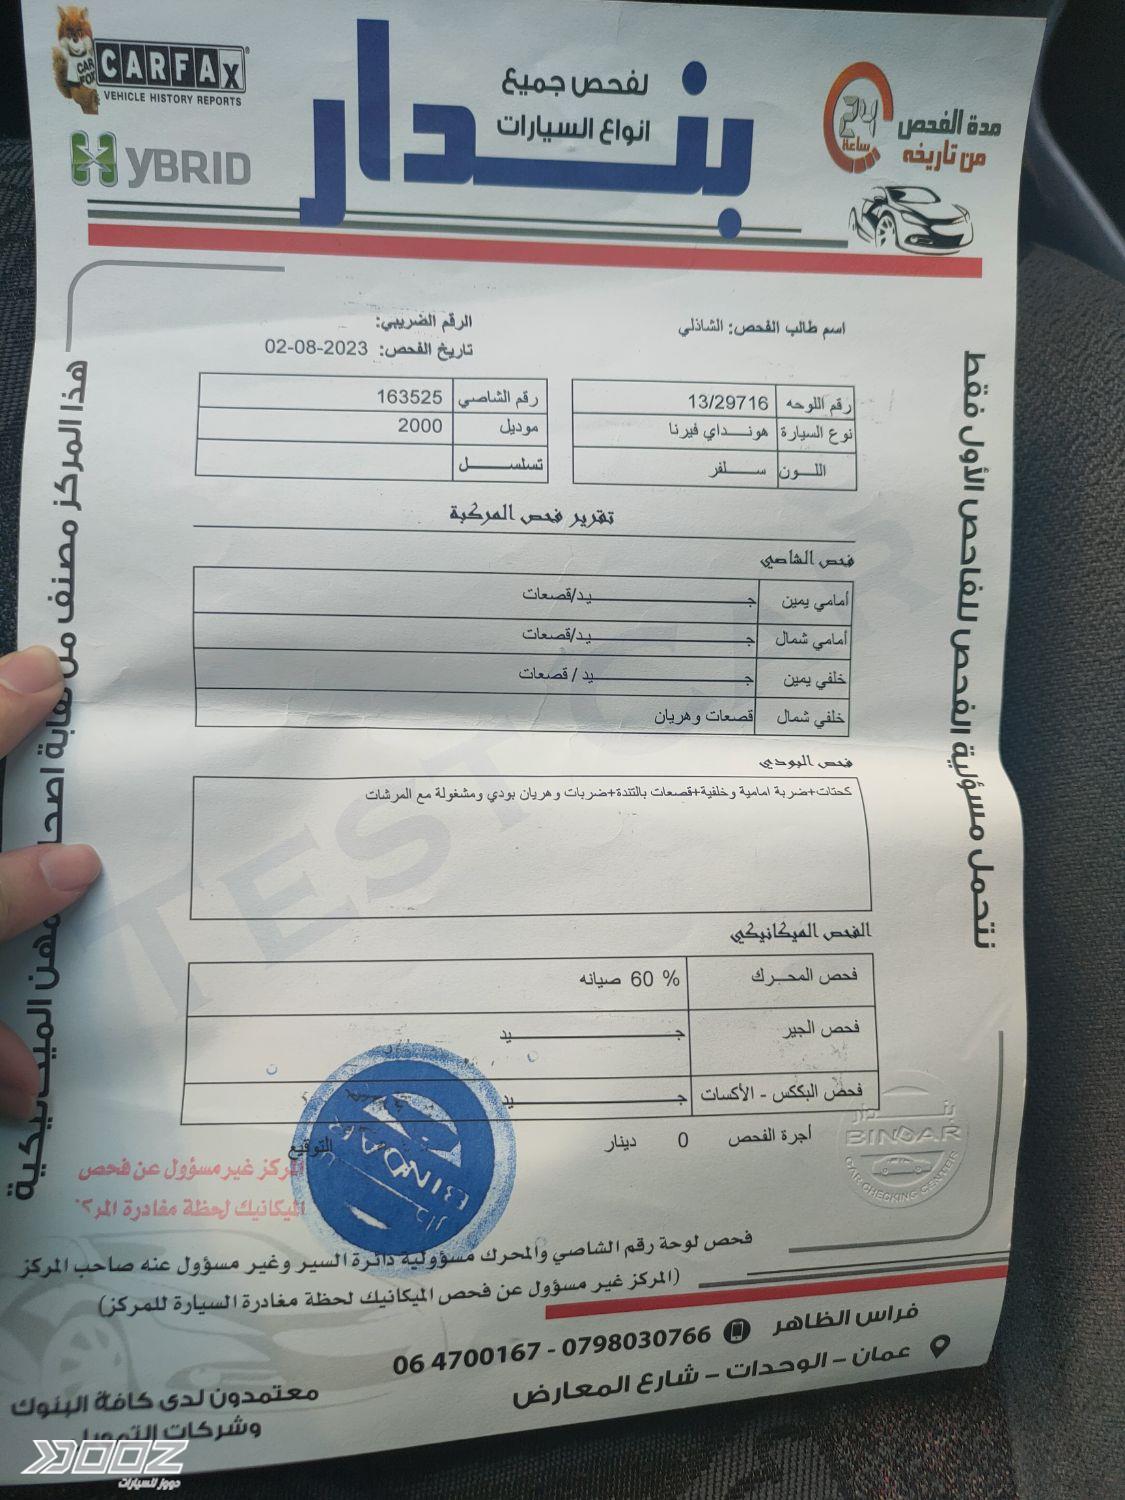 CARFAX
CAR
FOX
VEHICLE HISTORY REPORTS
HYBRID
بندار
لفحص جميع
انواع السيارات
24
ساعة
مدة الفحص
من تاريخه
اسم طالب الفحص: الشاذلي
الرقم الضريبي:
تاريخ الفحص: 02-08-2023
رقم اللوحه 13/29716
نوع السيارة هونـــداي فيرنا
اللـــون ســـلفر
رقم الشاصي 163525
موديل 2000
تسلســـل
تقرير فحص المركبة
فحص الشاصي
أمامي يمين جـــــيد/قصعات
أمامي شمال جـــــيد/قصعات
خلفي يمين جـــــيد / قصعات
خلفي شمال قصعات وهريان
فحص البودي
كحتات+ضربة امامية وخلفية+قصعات بالتندة+ضربات وهريان بودي ومشغولة مع المرشات
الفحص الميكانيكي
فحص المحـــرك 60 % صيانه
فحص الجير جـــــيد
فحص البككس - الأكسات جـــــيد
أجرة الفحص 0 دينار
التوقيع
BINDAR
بندار
BINDAR
CAR CHECKING CENTER
المركز غير مسؤول عن فحص
الميكانيك لحظة مغادرة المركز
فحص لوحة رقم الشاصي والمحرك مسؤولية دائرة السير وغير مسؤول عنه صاحب المركز
(المركز غير مسؤول عن فحص الميكانيك لحظة مغادرة السيارة للمركز)
فراس الظاهر 0798030766 - 06 4700167
عمان – الوحدات – شارع المعارض
معتمدون لدى كافة البنوك
وشركات التمويل
نتحمل مسؤلية الفحص للفاحص الأول فقط
هذا المركز مصنف من نقابة اصحاب مهن الميكانيكية
TEST CAR
DOOZ
دووز للسيارات